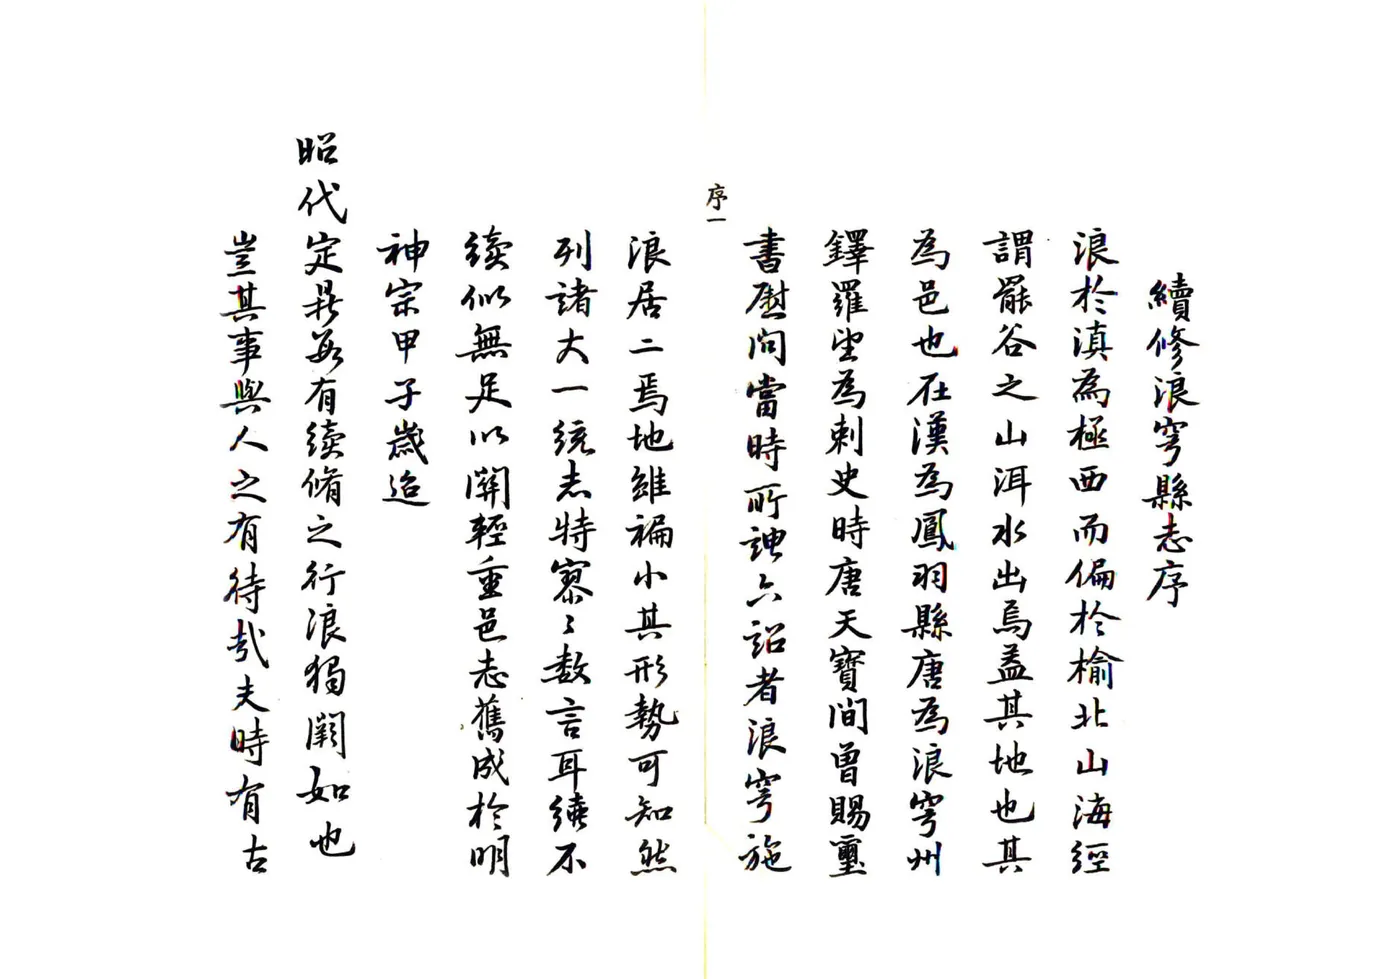 續修浪穹縣志序
浪於滇為極西而偏於榆北山海經
謂罷谷之山洱水出焉葢其地也其
為邑也在漢為鳳羽縣唐為浪穹州
鐸羅望為刺史時唐天寶間曾賜璽
書慰問當時所謂六詔者浪穹施
序一
浪居二焉地雖褊小其形勢可知然
列諸大一統志特寥〻数言耳續不
续似無足以關輕重邑志舊成於明
神宗甲子歲迨
昭代定鼎㡬有续脩之行浪獨闕如也
豈其事與人之有待哉夫時有古